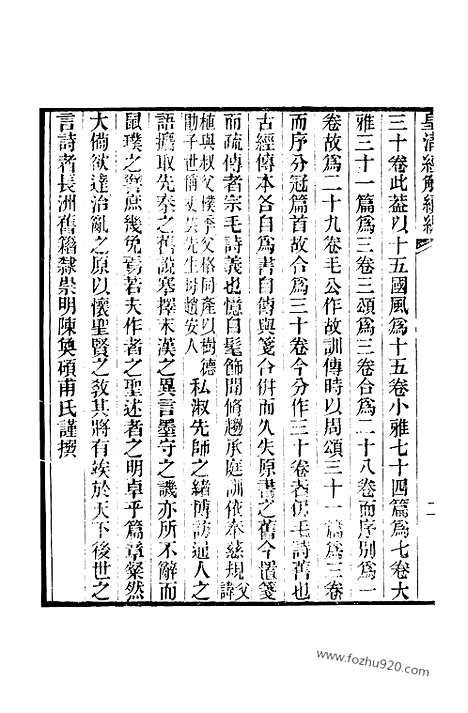 皇清經解續編
二
三十卷此葢以十五國風爲十五卷小雅七十四篇爲七卷大
雅三十一篇爲三卷三頌爲三卷合爲二十八卷而序別爲一
卷故爲二十九卷毛公作故訓傳時以周頌三十一篇爲三卷
而序分冠篇首故合爲三十卷今分作三十卷者仍毛詩舊也
古經傳本各自爲書自傳與箋合併而久失原書之舊今置箋
而疏傳者宗毛詩義也憶自髦飾聞脩趨承庭訓依奉慈規父諱
植與叔父樸季父格同產以樹德
勖子世爾矣先生母趙安人私淑先師之緒傳訪通人之
語摭取先秦之舊說搴擇末漢之異言墨守之譏亦所不辭而
鼠璞之辨庶幾免焉若夫作者之聖述者之明卓乎篇章粲然
大備欲達治亂之原以懷聖賢之敎其將有竢於天下後世之
言詩者長洲舊籍隸崇明陳奐碩甫氏謹撰
www.fozhu920.com